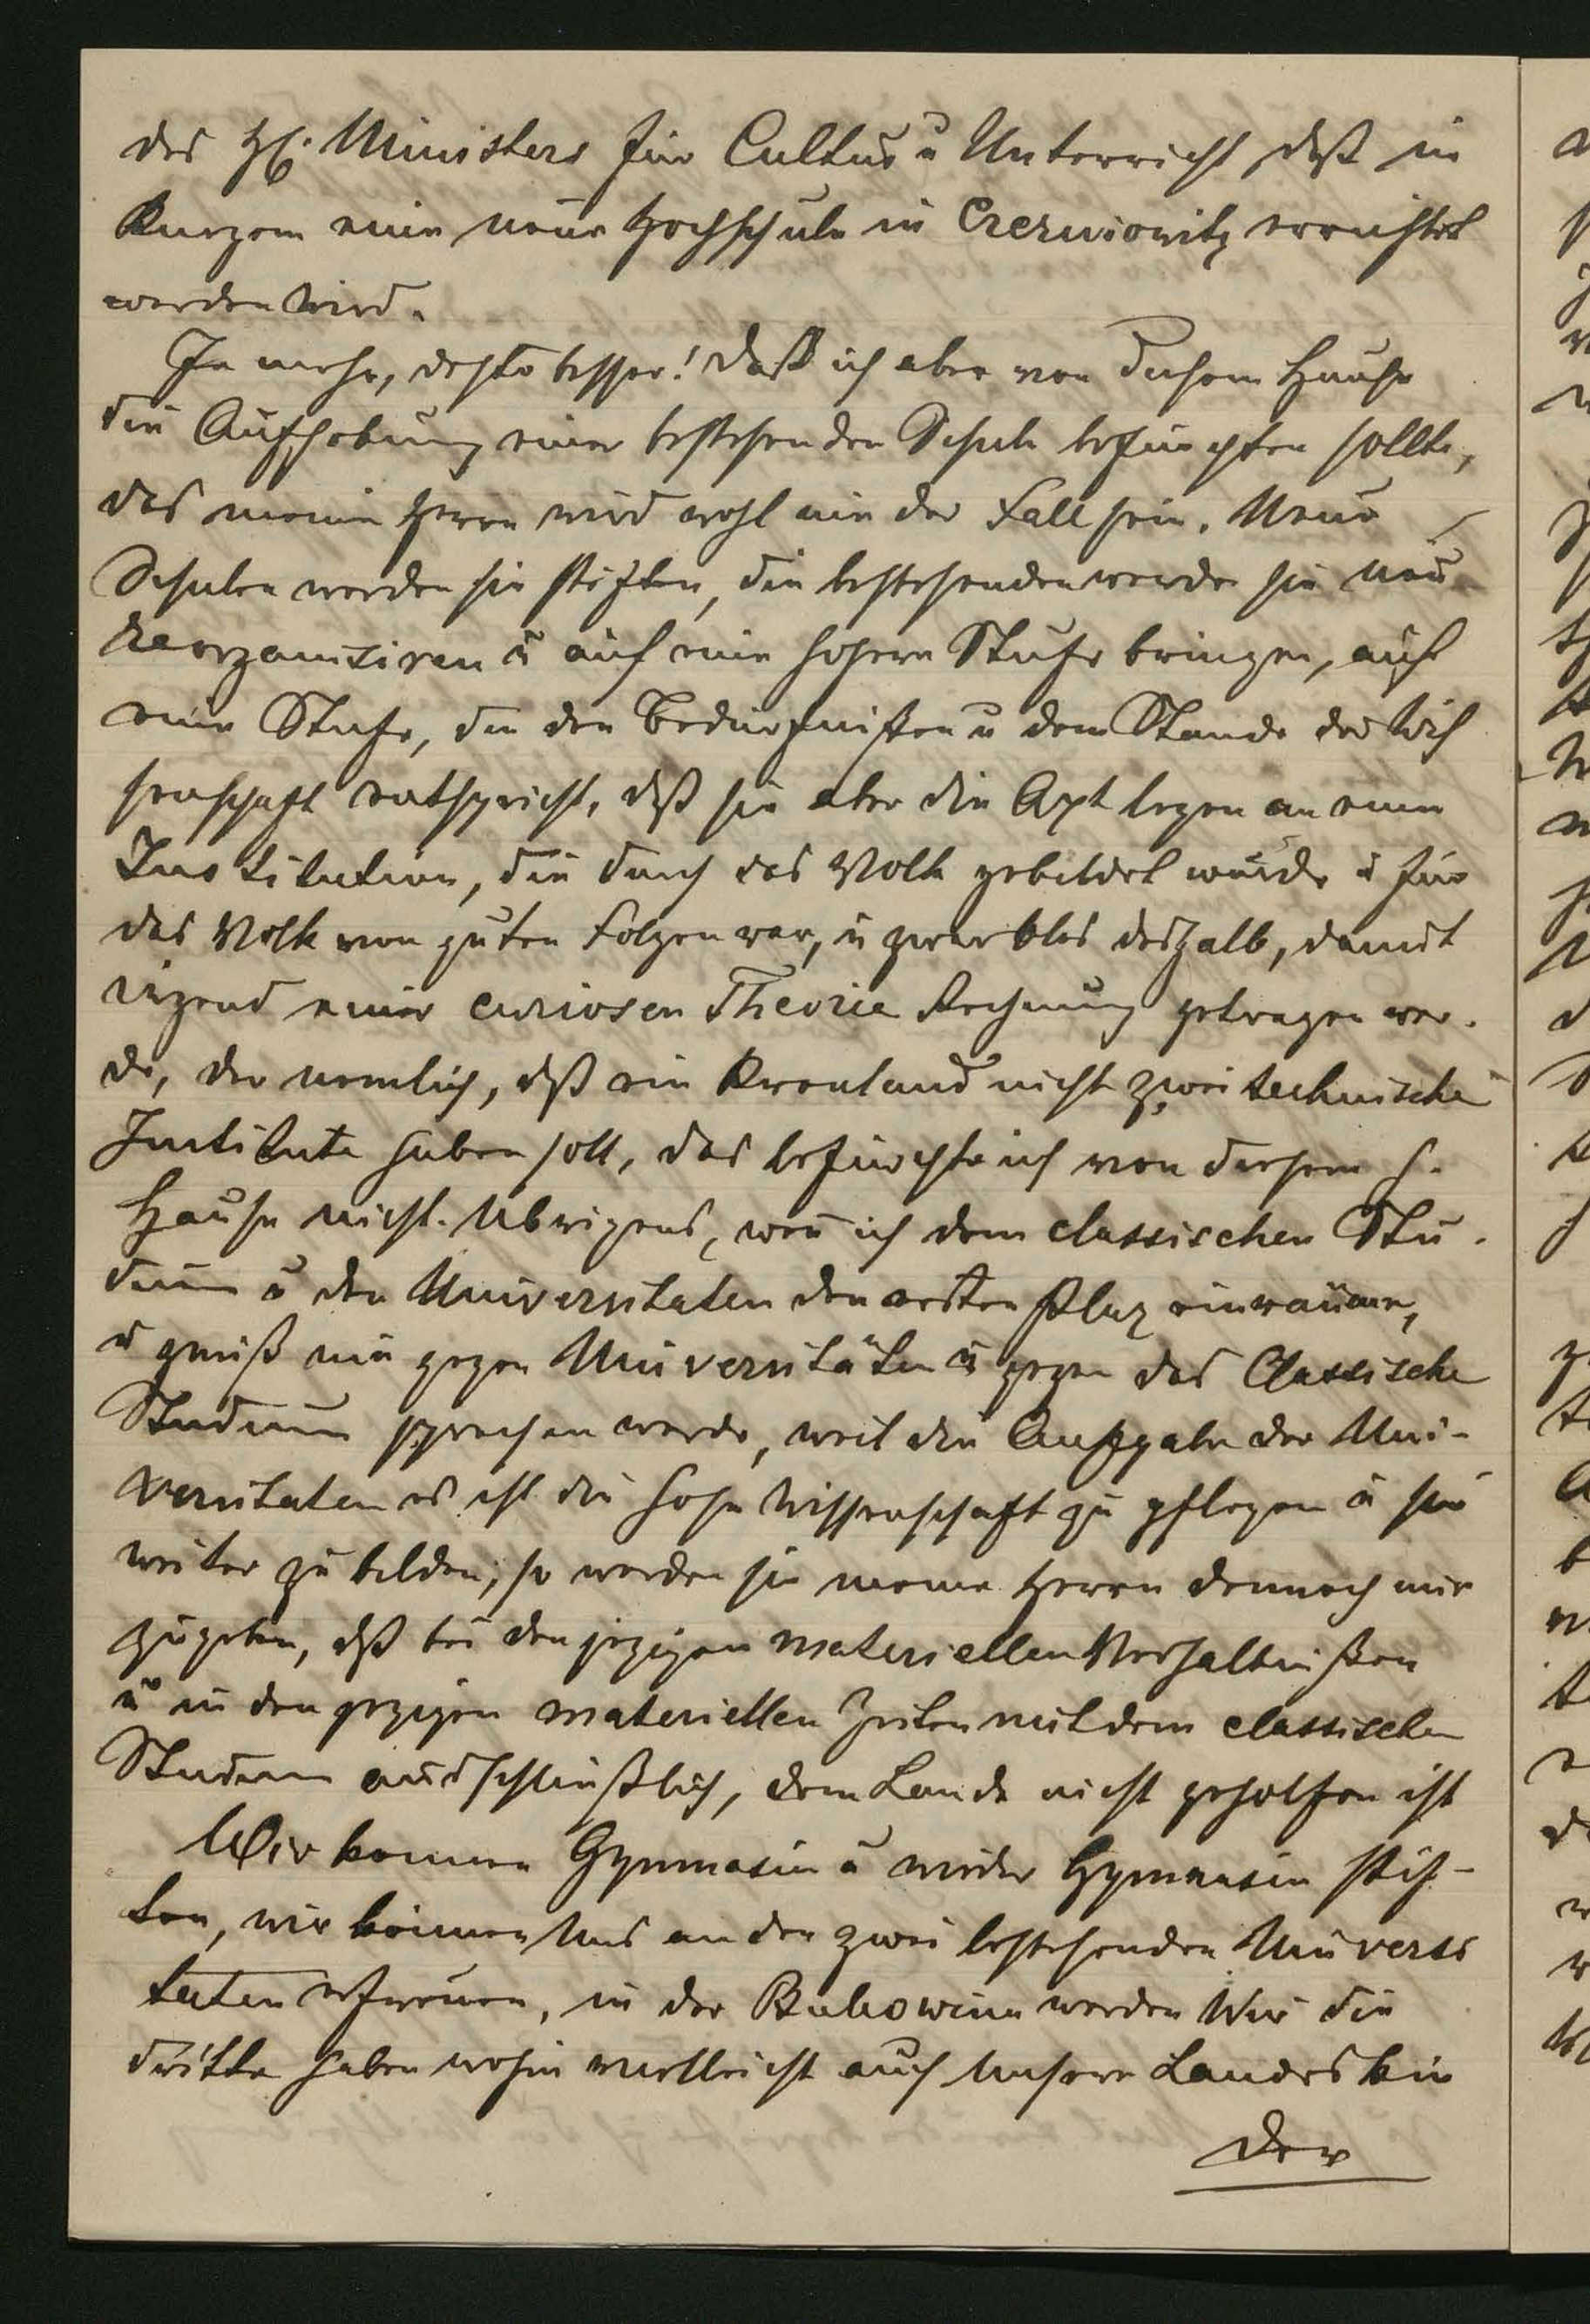 des H. Ministers für Cultus u Unterricht, daß in
Kurzem eine neue Hochschule in Czerniowitz errichtet
werden wird.
Je mehr, desto besser! Daß ich aber von diesem Hause
die Aufhebung einer bestehenden Schule befürchten sollte,
das meine Herrn wird wohl nie der Fall sein. Neue
Schulen werden sie stiften, die bestehenden werden sie neu
reorganisiren u auf eine höhere Stufe bringen, auf
eine Stufe, die den Bedürfnissen u dem Stande der Wis
senschaft entspricht, daß sie aber die Axt legen an eine
Institution, die durch das Volk gebildet wurde u für
das Volk von guten Folgen war, u zwar blos deshalb, damit
irgend einer curiosen Theorie Rechnung getragen wer-
de, der nemlich, daß ein Kronland nicht zwei technische
Institute haben soll, das befürchte ich von diesem h.
Hause nicht. Übrigens, wen ich dem classischen Stu-
dium u den Universitaten den ersten Plaz einräume,
u gewiß nie gegen Universitäten u gegen das Classische
Studium sprechen werde, weil die Aufgabe der Uni-
versitaten es ist die hohe Wissenschaft zu pflegen u sie
weiter zu bilden, so werden sie meine Herren dennoch mir
zugeben, daß bei den jezigen materiellen Verhaltnißen
u in den jezigen materiellen Zeiten mit dem classischen
Studium ausschlüßlich, dem Lande nicht geholfen ist
Wir konnen Gymnasien u wieder Gymnasien stif-
ten, wir können uns an den zwei bestehenden Univers
taten erfreuen, in der Bukowina werden Wir die
dritte haben wohin vielleicht auch unsere Landeskin
der